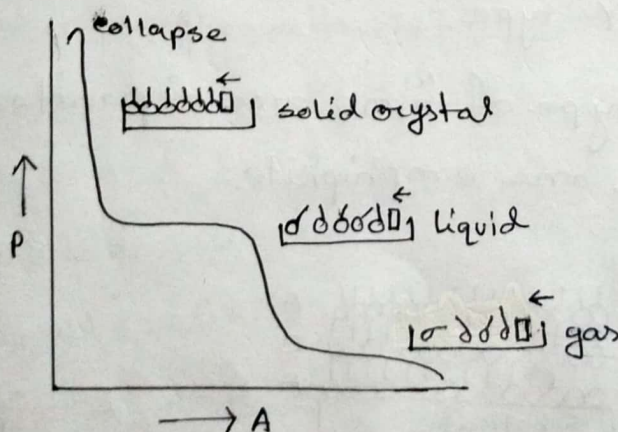 collapse
solid crystal
liquid
gas
P
A